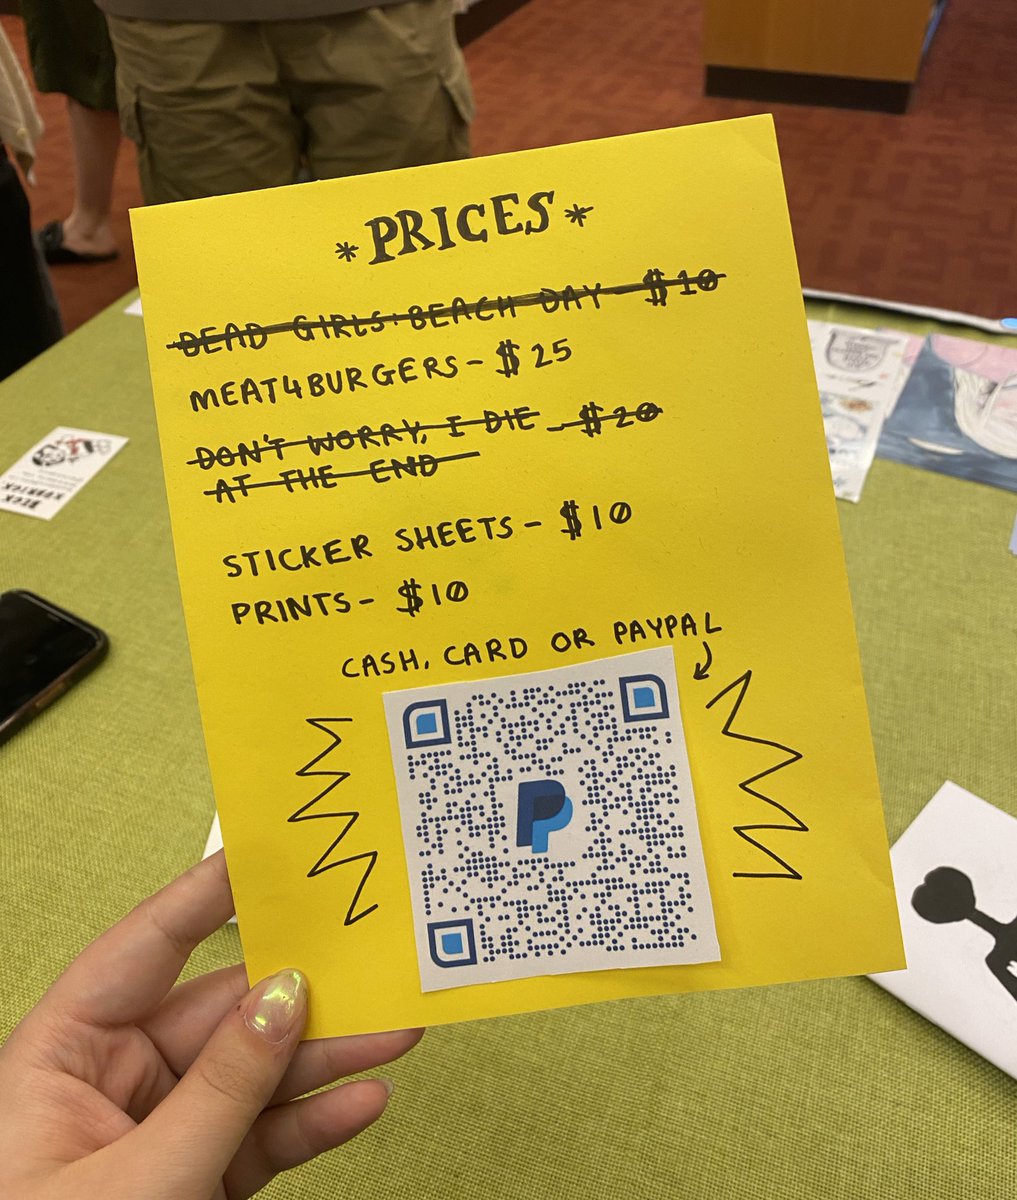 *PRICES*
DEAD GIRLS' BEACH DAY - $10
MEAT4BURGERS - $25
DON'T WORRY, I DIE - $20
AT THE END
STICKER SHEETS - $10
PRINTS - $10
CASH, CARD OR PAYPAL